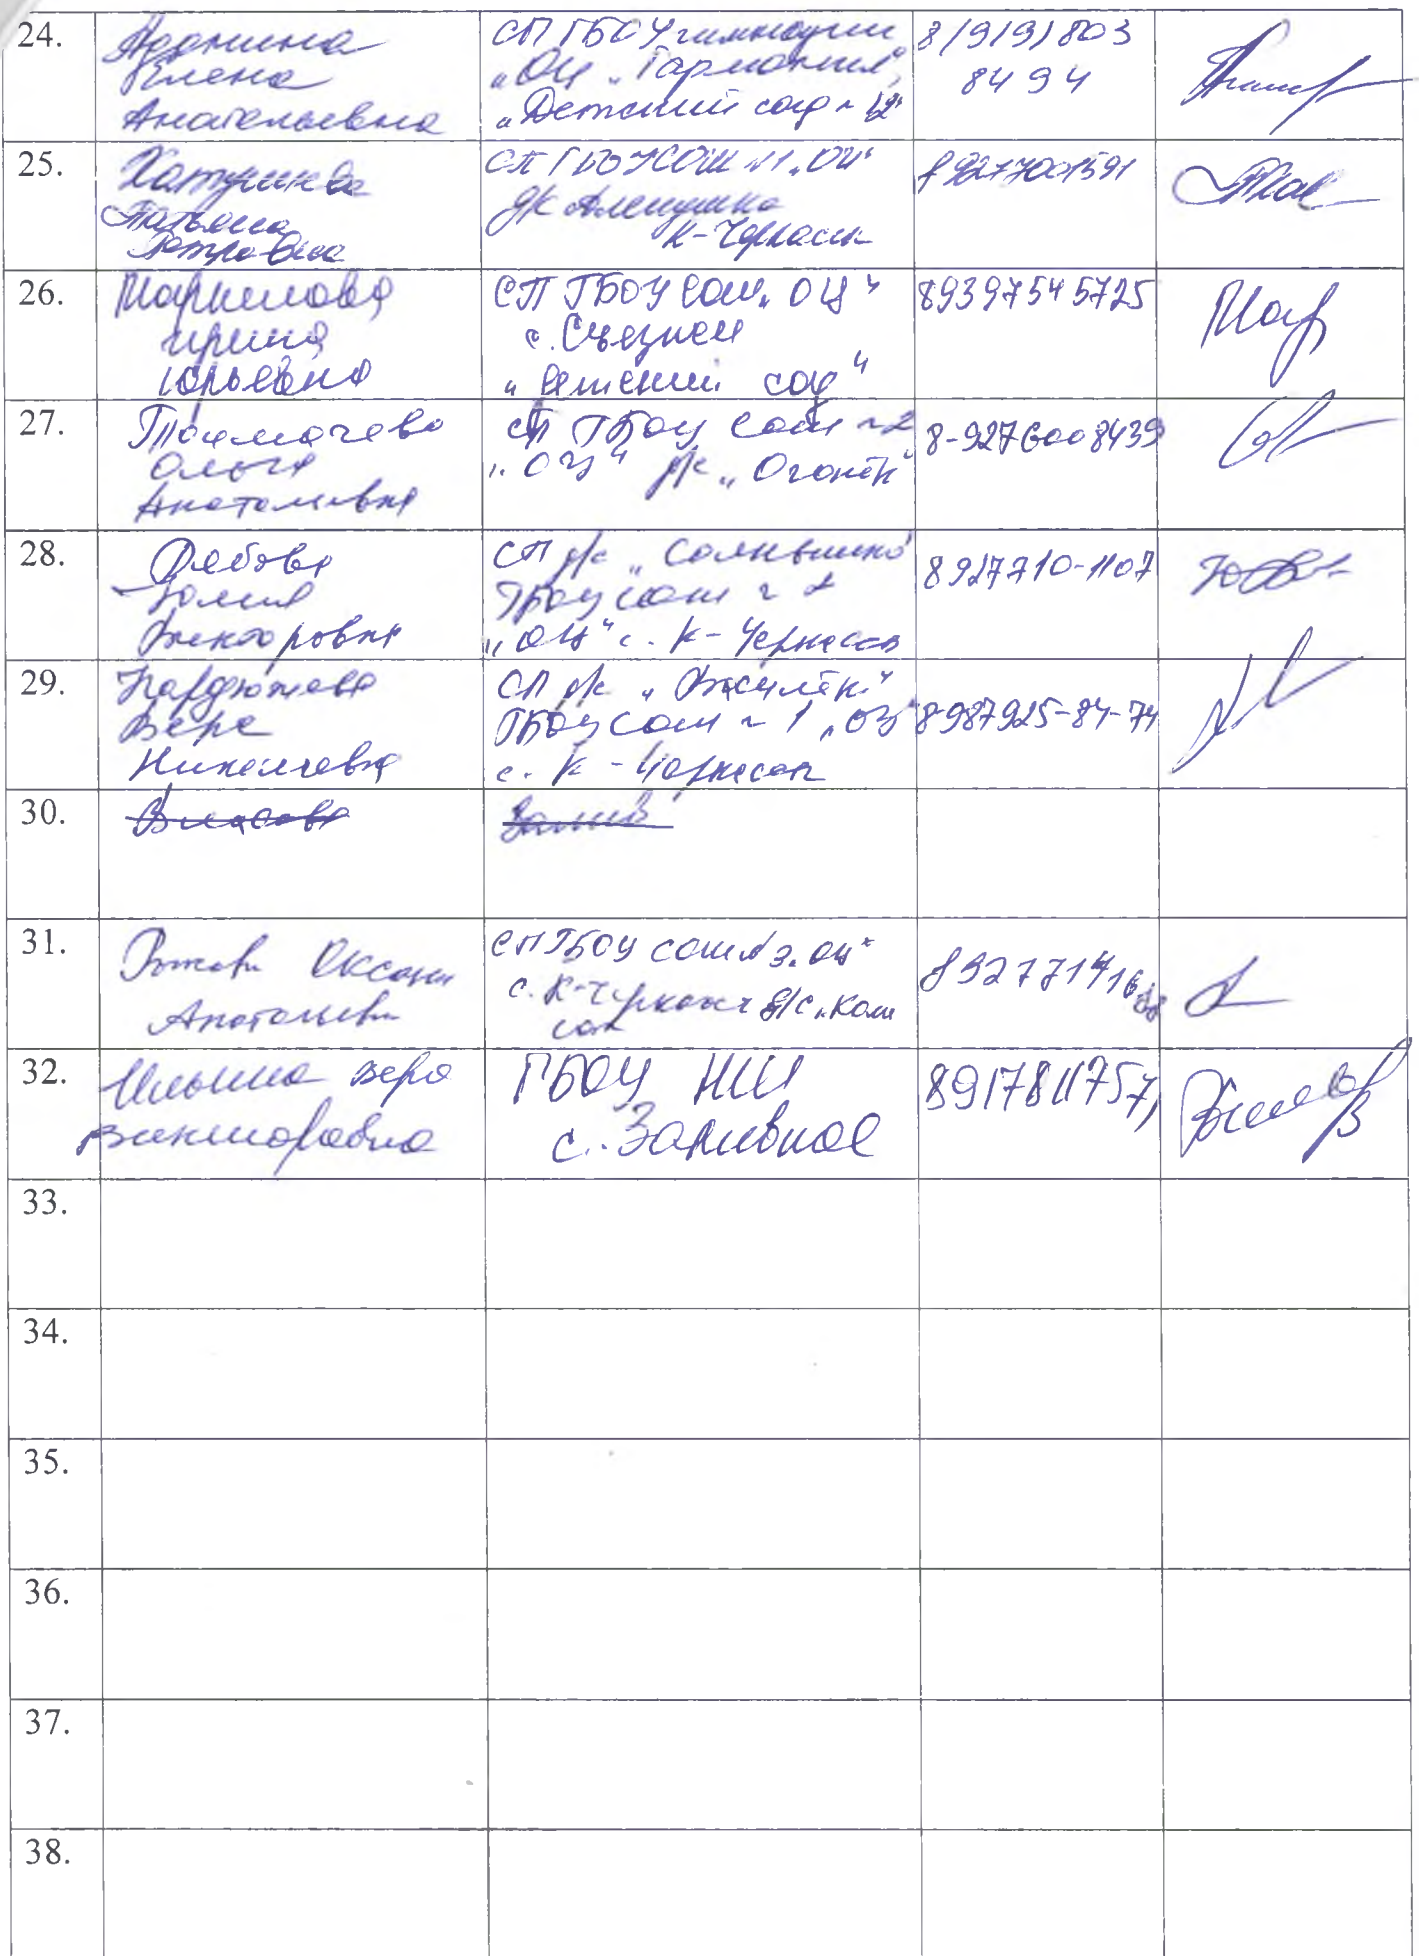 24.
Елена
Анатольевна
СП ГБОУ гимназии
„ОЦ „Гармония"
„Детский сад
8/919/803
84 94
25.
Татьяна
Петровна
СП ГБОУ СОШ №1 „ОЦ"
д/с Аленушка
К-Черкассы
89277001591
26.
Ирина
Юрьевна
СП ГБОУ СОШ „ОЦ"
с. Съезжее
„Детский сад"
89397545725
27.
Толмачева
Ольга
Анатольевна
СП ГБОУ СОШ №2
„ОЦ" д/с „Огонёк"
8-9276008439
28.
Рябова
Юлия
Викторовна
СП д/с „Солнышко"
ГБОУ СОШ №
„ОЦ" с. К-Черкассы
8927710-1107
29.
Вера
Николаевна
СП д/с „Василёк"
ГБОУ СОШ №1 „ОЦ"
с. К-Черкассы
8987925-84-74
30.
Власова
31.
Оксана
Анатольевна
СП ГБОУ СОШ №3 „ОЦ"
с. К-Черкассы д/с
32.
Ильина Вера
Викторовна
ГБОУ НШ
с. Заливное
89178117571
33.
34.
35.
36.
37.
38.